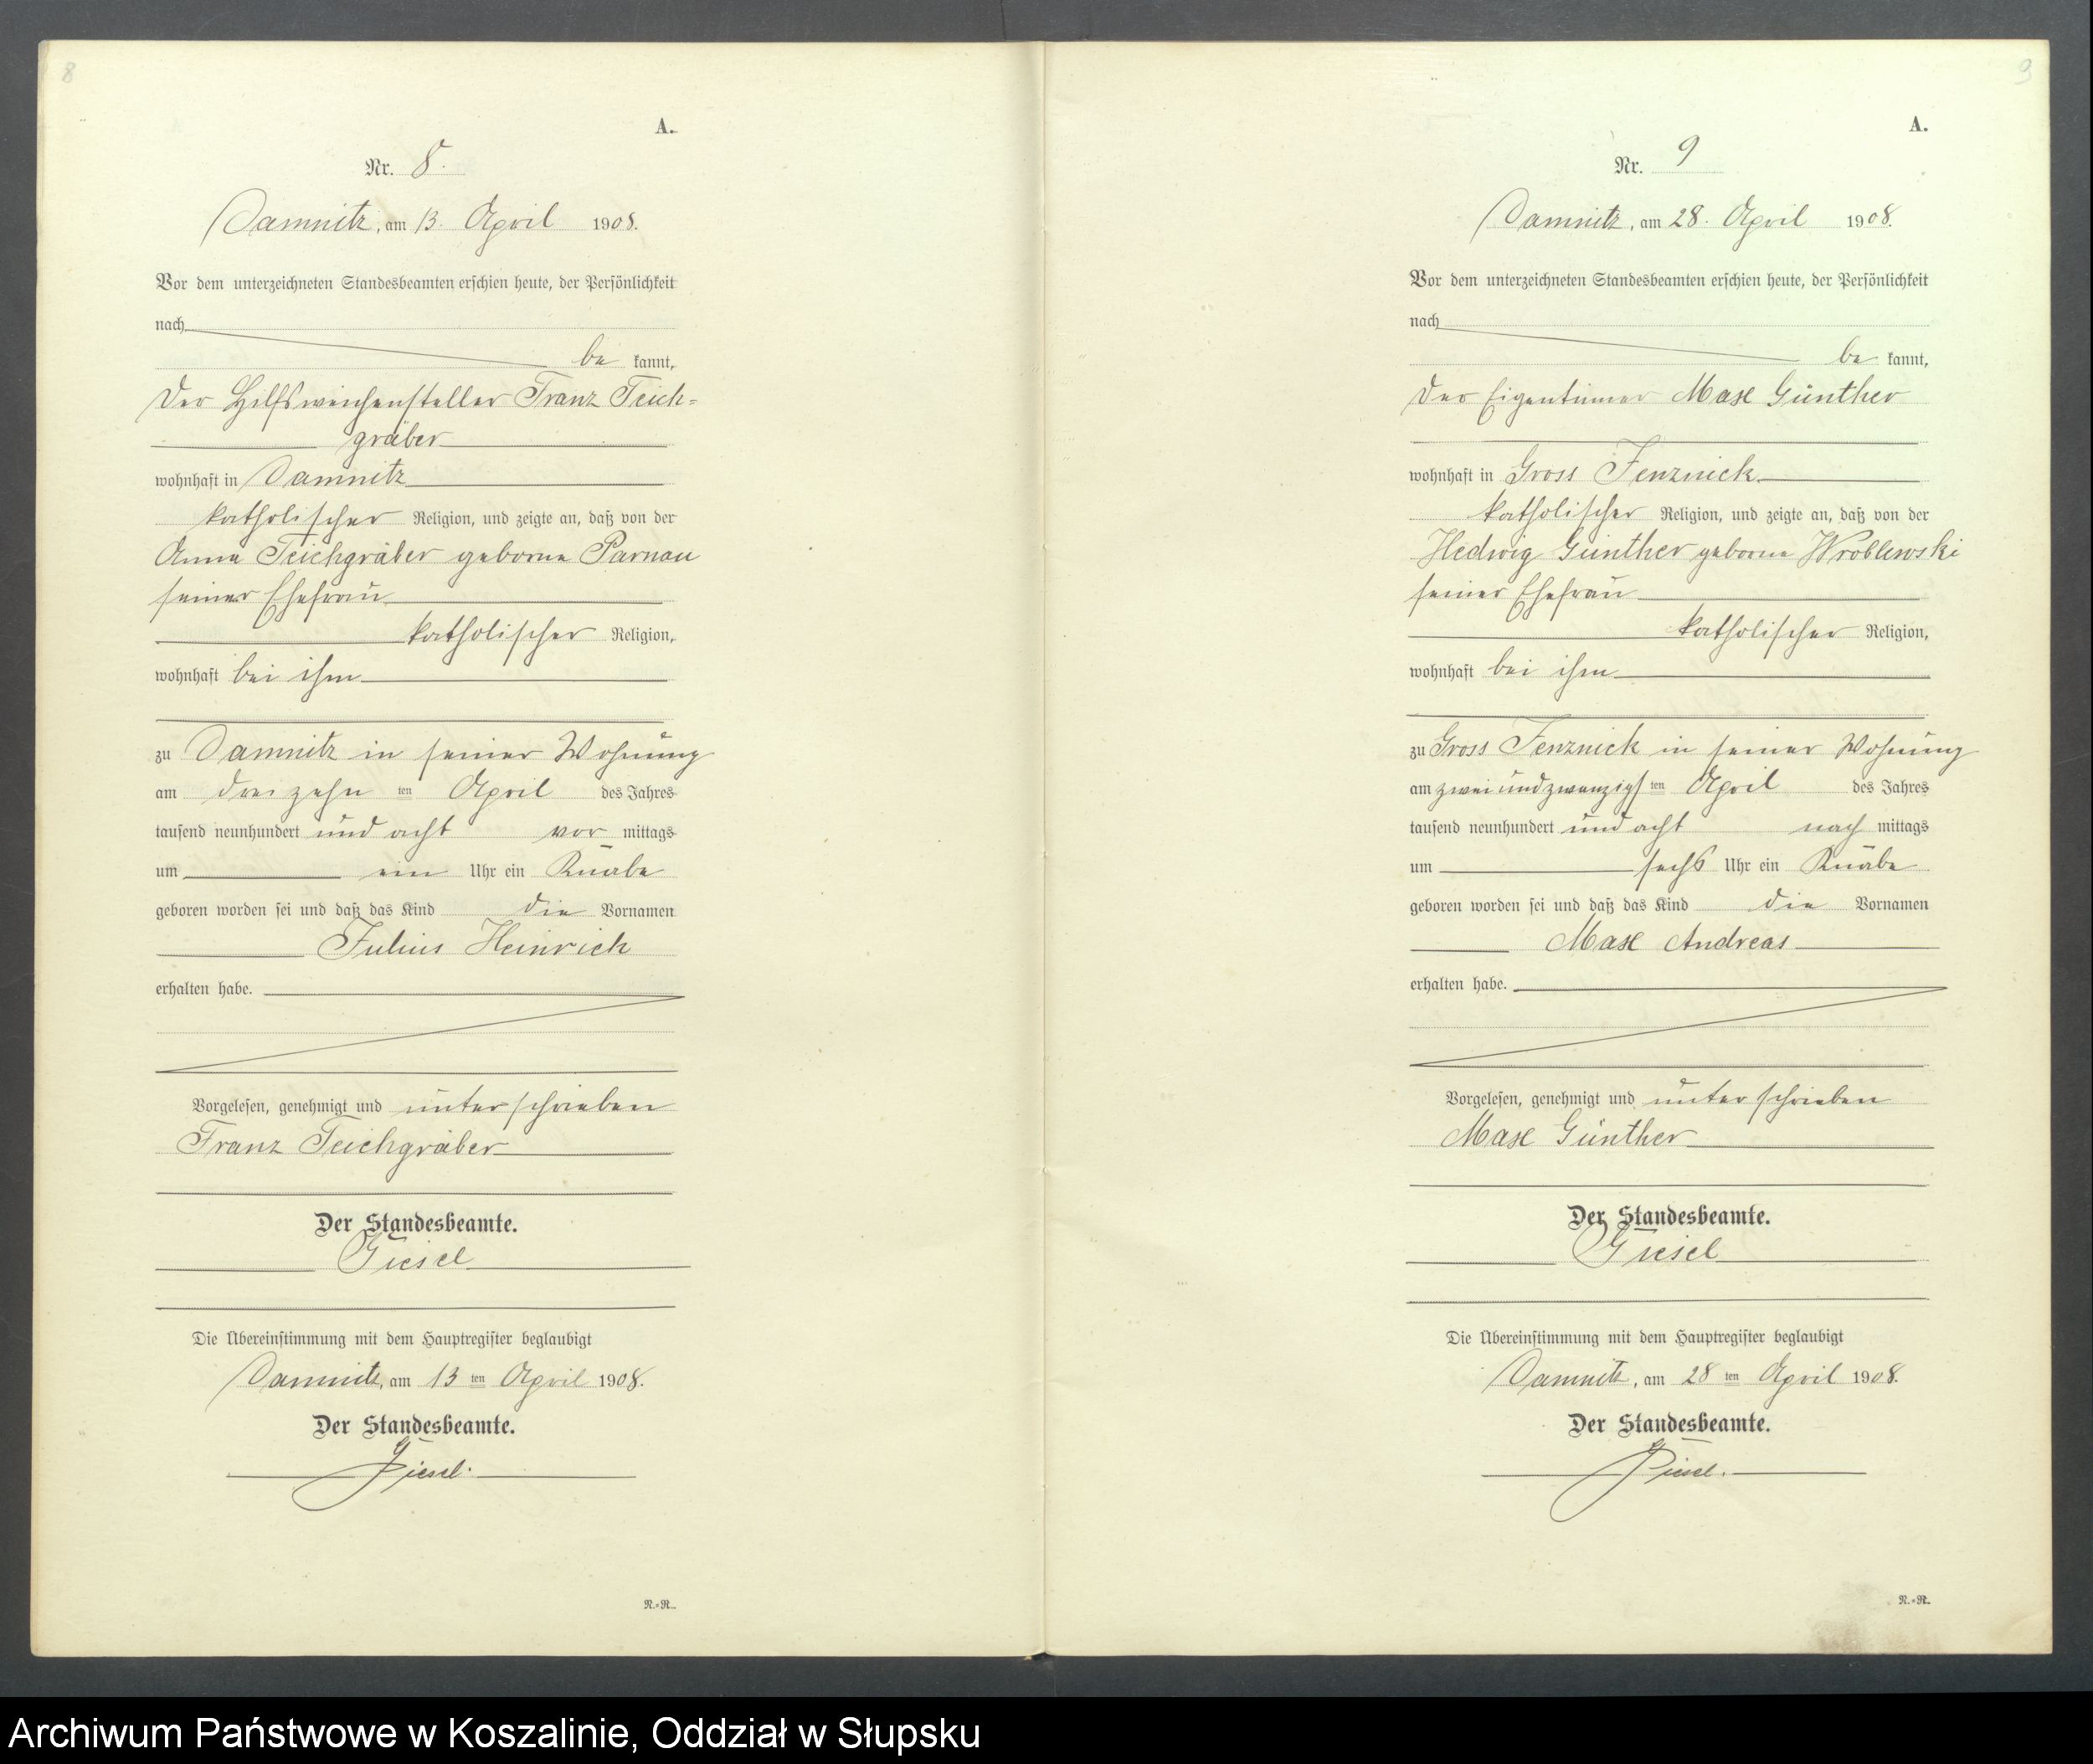 8
A.
Nr. 8.
Damnitz, am 13. April 1908.
Vor dem unterzeichneten Standesbeamten erschien heute, der Persönlichkeit
nach
be kannt,
der Hilfsweichensteller Franz Teich-
gräber
wohnhaft in Damnitz
katholischer Religion, und zeigte an, daß von der
Anna Teichgräber geborne Parnau
seiner Ehefrau
katholischer Religion,
wohnhaft bei ihm
zu Damnitz in seiner Wohnung
am dreizehn ten April des Jahres
tausend neunhundert und acht vor mittags
um ein Uhr ein Knabe
geboren worden sei und daß das Kind die Vornamen
Julius Heinrich
erhalten habe.
Vorgelesen, genehmigt und unterschrieben
Franz Teichgräber
Der Standesbeamte.
Giesel
Die Übereinstimmung mit dem Hauptregister beglaubigt
Damnitz, am 13 ten April 1908.
Der Standesbeamte.
Giesel.
N.=R.
9
A.
Nr. 9
Damnitz, am 28. April 1908.
Vor dem unterzeichneten Standesbeamten erschien heute, der Persönlichkeit
nach
be kannt,
der Eigentümer Max Günther
wohnhaft in Gross Jenznick
katholischer Religion, und zeigte an, daß von der
Hedwig Günther geborne Wroblewski
seiner Ehefrau
katholischer Religion,
wohnhaft bei ihm
zu Gross Jenznick in seiner Wohnung
am zweiundzwanzigs ten April des Jahres
tausend neunhundert und acht nach mittags
um sechs Uhr ein Knabe
geboren worden sei und daß das Kind die Vornamen
Max Andreas
erhalten habe.
Vorgelesen, genehmigt und unterschrieben
Max Günther
Der Standesbeamte.
Giesel
Die Übereinstimmung mit dem Hauptregister beglaubigt
Damnitz, am 28 ten April 1908.
Der Standesbeamte.
Giesel.
N.=R.
Archiwum Państwowe w Koszalinie, Oddział w Słupsku